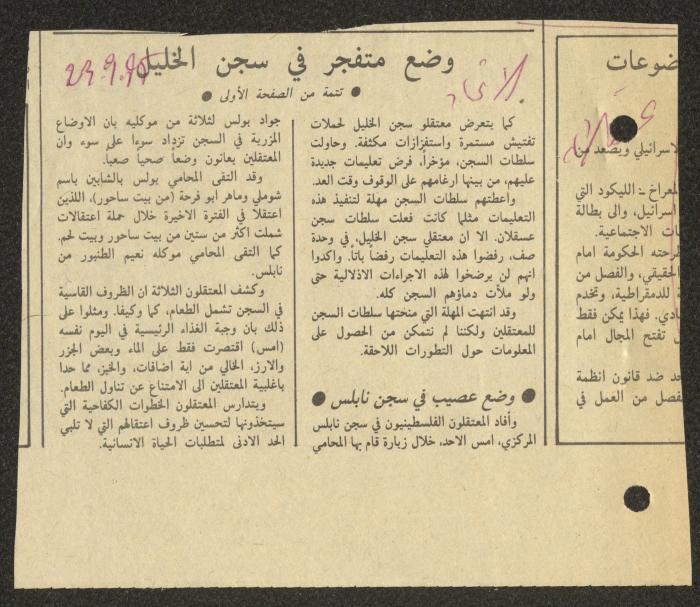 وضع متفجر في سجن الخليل
23.9.85
الاتحاد
● تتمة من الصفحة الأولى ●
كما يتعرض معتقلو سجن الخليل لحملات
تفتيش مستمرة واستفزازات مكثفة. وحاولت
سلطات السجن، مؤخراً، فرض تعليمات جديدة
عليهم، من بينها ارغامهم على الوقوف وقت العد.
واعطتهم سلطات السجن مهلة لتنفيذ هذه
التعليمات مثلما كانت فعلت سلطات سجن
عسقلان. الا ان معتقلي سجن الخليل، في وحدة
صف، رفضوا هذه التعليمات رفضاً باتاً. واكدوا
انهم لن يرضخوا لهذه الاجراءات الاذلالية حتى
ولو ملأت دماؤهم السجن كله.
وقد انتهت المهلة التي منحتها سلطات السجن
للمعتقلين ولكننا لم نتمكن من الحصول على
المعلومات حول التطورات اللاحقة.
● وضع عصيب في سجن نابلس ●
وأفاد المعتقلون الفلسطينيون في سجن نابلس
المركزي، امس الاحد، خلال زيارة قام بها المحامي
جواد بولس لثلاثة من موكليه بان الاوضاع
المزرية في السجن تزداد سوءا على سوء وان
المعتقلين يعانون وضعاً صحياً صعباً.
وقد التقى المحامي بولس بالشابين باسم
شوملي وماهر ابو فرحة (من بيت ساحور)، اللذين
اعتقلا في الفترة الاخيرة خلال حملة اعتقالات
شملت اكثر من ستين من بيت ساحور وبيت لحم.
كما التقى المحامي موكله نعيم الطنبور من
نابلس.
وكشف المعتقلون الثلاثة ان الظروف القاسية
في السجن تشمل الطعام، كما وكيفا. ومثلوا على
ذلك بان وجبة الغذاء الرئيسية في اليوم نفسه
(امس) اقتصرت فقط على الماء وبعض الجزر
والارز، الخالي من اية اضافات، والخبز، مما حدا
باغلبية المعتقلين الى الامتناع عن تناول الطعام.
ويتدارس المعتقلون الخطوات الكفاحية التي
سيتخذونها لتحسين ظروف اعتقالهم التي لا تلبي
الحد الادنى لمتطلبات الحياة الانسانية.
ضوعات
لاسرائيلي ويصعد من
لمعراخ ـ الليكود التي
اسرائيل، والى بطالة
ات الاجتماعية.
طرحته الحكومة امام
لحقيقي، والفصل من
ة للدمقراطية، وتخدم
ادي. فهذا يمكن فقط
ل تفتح المجال امام
حد ضد قانون انظمة
لفصل من العمل في